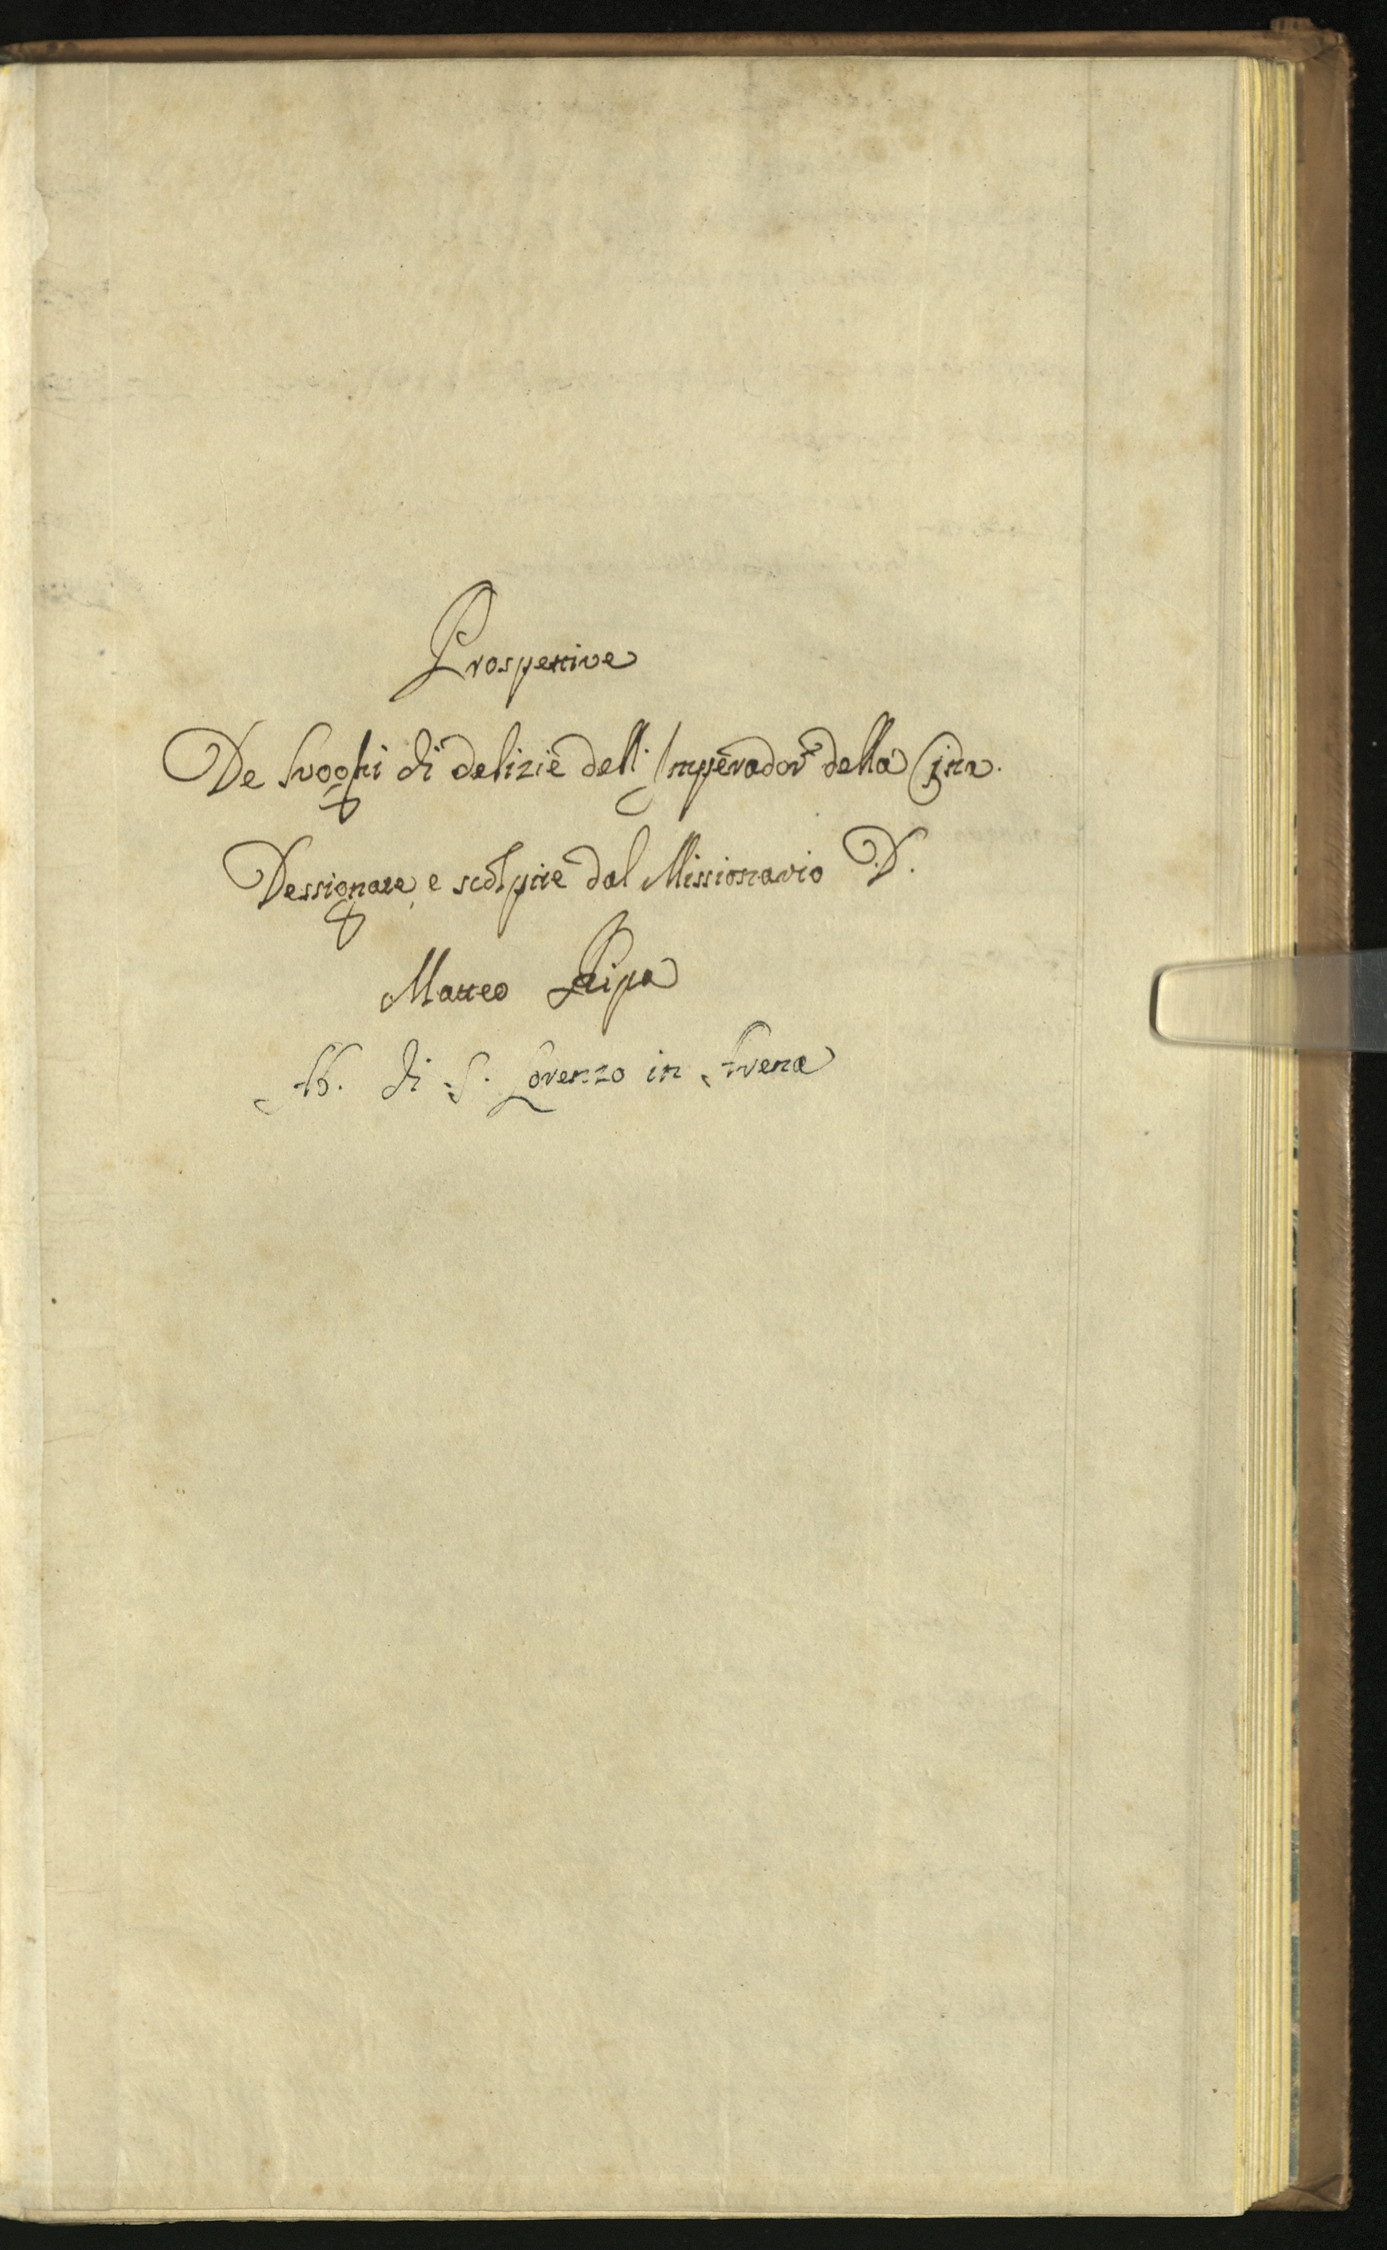 Prospettive
De luoghi di delizie dell: Imperador della Cina.
Dessignate, e scolpite dal Missionario D.
Matteo Ripa
Ab. di S. Lorenzo in Arena